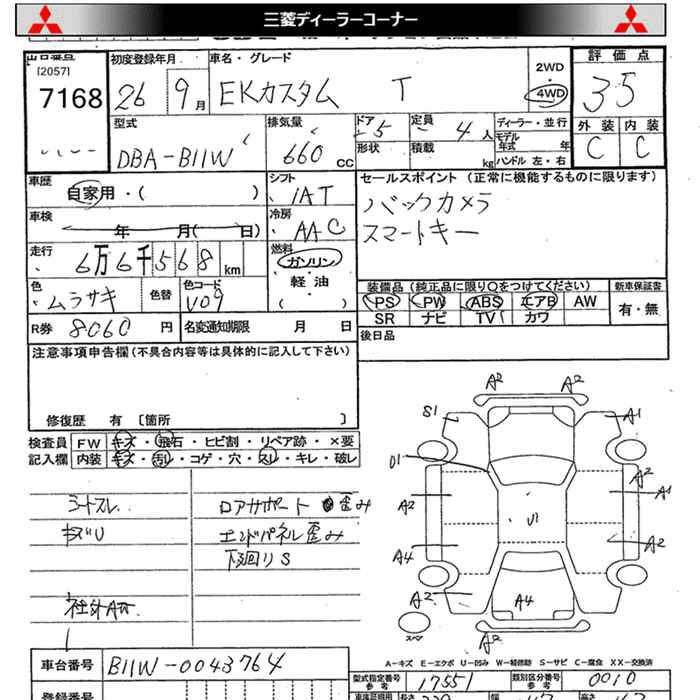 三菱ディーラーコーナー
出品番号 [2057] 7168
初度登録年月 26 9月
車名・グレード EKカスタム T
2WD 4WD
評価点 35
型式 DBA-B11W
排気量 660 cc
ドア 5 形状
定員 4人 積載 kg
ディーラー・並行
モデル年式 年
ハンドル 左・右
外装 C 内装 C
車歴 自家用・( )
シフト IAT
セールスポイント (正常に機能するものに限ります)
バックカメラ
スマートキー
車検 年 月( 日)
冷房 AAC
走行 6万6千568 km
燃料 ガソリン・軽油
色 ムラサキ 色替 色コード V09
装備品 (純正品に限り○をつけてください) 新車保証書
PS PW ABS エアB AW 有・無
SR ナビ TV カワ
R券 8060 円 名変通知期限 月 日
後日品
注意事項申告欄 (不具合内容等は具体的に記入して下さい)
修復歴 有 [箇所 ]
検査員記入欄
FW キズ・飛石・ヒビ割・リペア跡・×要
内装 キズ・汚レ・コゲ・穴・スレ・キレ・破レ
シートスレ
キズU
社外AW
ロアサポート歪み
エンドパネル歪み
下回りS
A2 A2
S1 A1
D1 A2
A2 A1
U1
A4 A2
A2 A4
スペア A2
A-キズ E-エクボ U-凹み W-補修跡 S-サビ C-腐食 XX-交換済
車台番号 B11W-0043764
型式指定番号 参考 17551 類別区分番号 参考 0010
登録番号